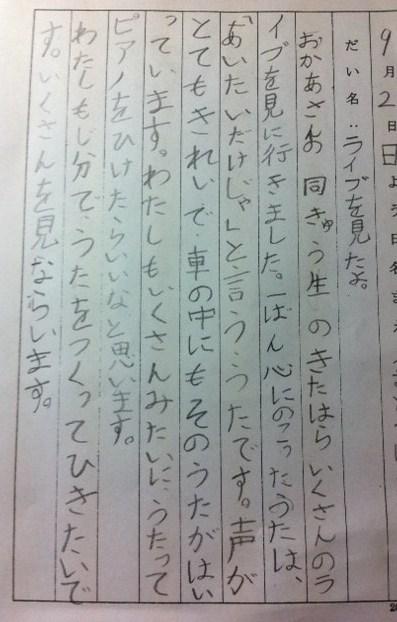 9月2日日よう日
だい名：ライブを見たよ。
おかあさんの同きゅう生のきたはらいくさんのラ
イブを見に行きました。一ばん心にのこったうたは、
「あいたいだけじゃ」と言ううたです。声が
とてもきれいで、車の中にもそのうたがはい
っています。わたしもいくさんみたいに、うたって
ピアノをひけたらいいなと思います。
わたしもじ分で、うたをつくってひきたいで
す。いくさんを見ならいます。